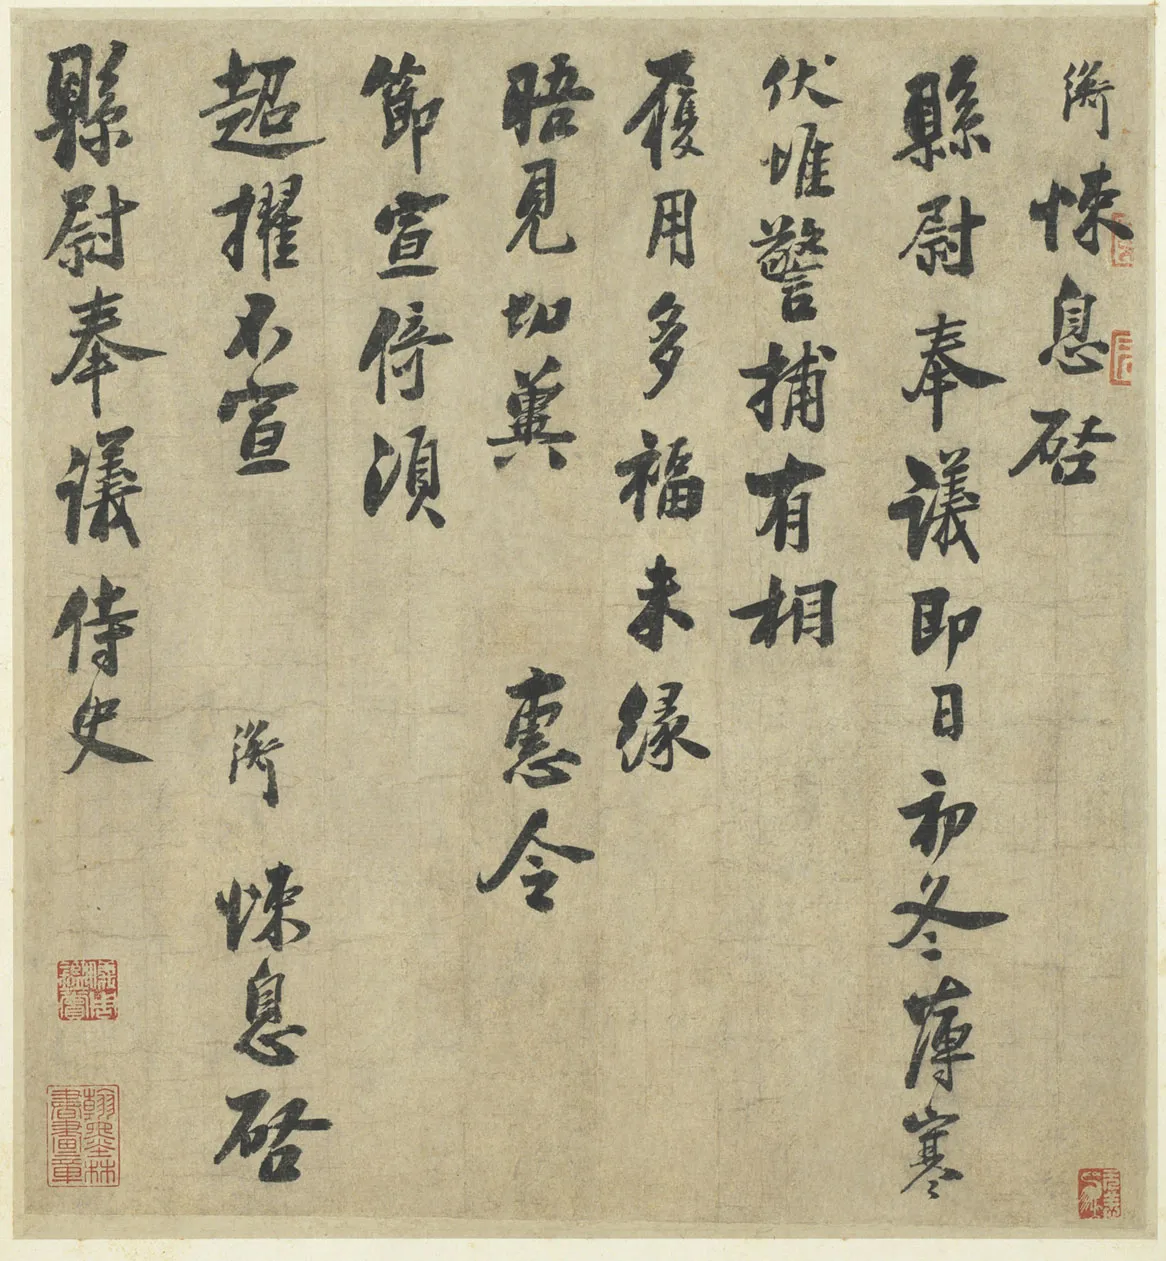 悚息啓
縣尉奉議即日初冬薄寒
伏惟警捕有相
履用多福未緣
晤見切冀 惠令
節宣倚須
超擢不宣 悚息啓
縣尉奉議侍史
儀周鑑賞
翰墨林書畫章